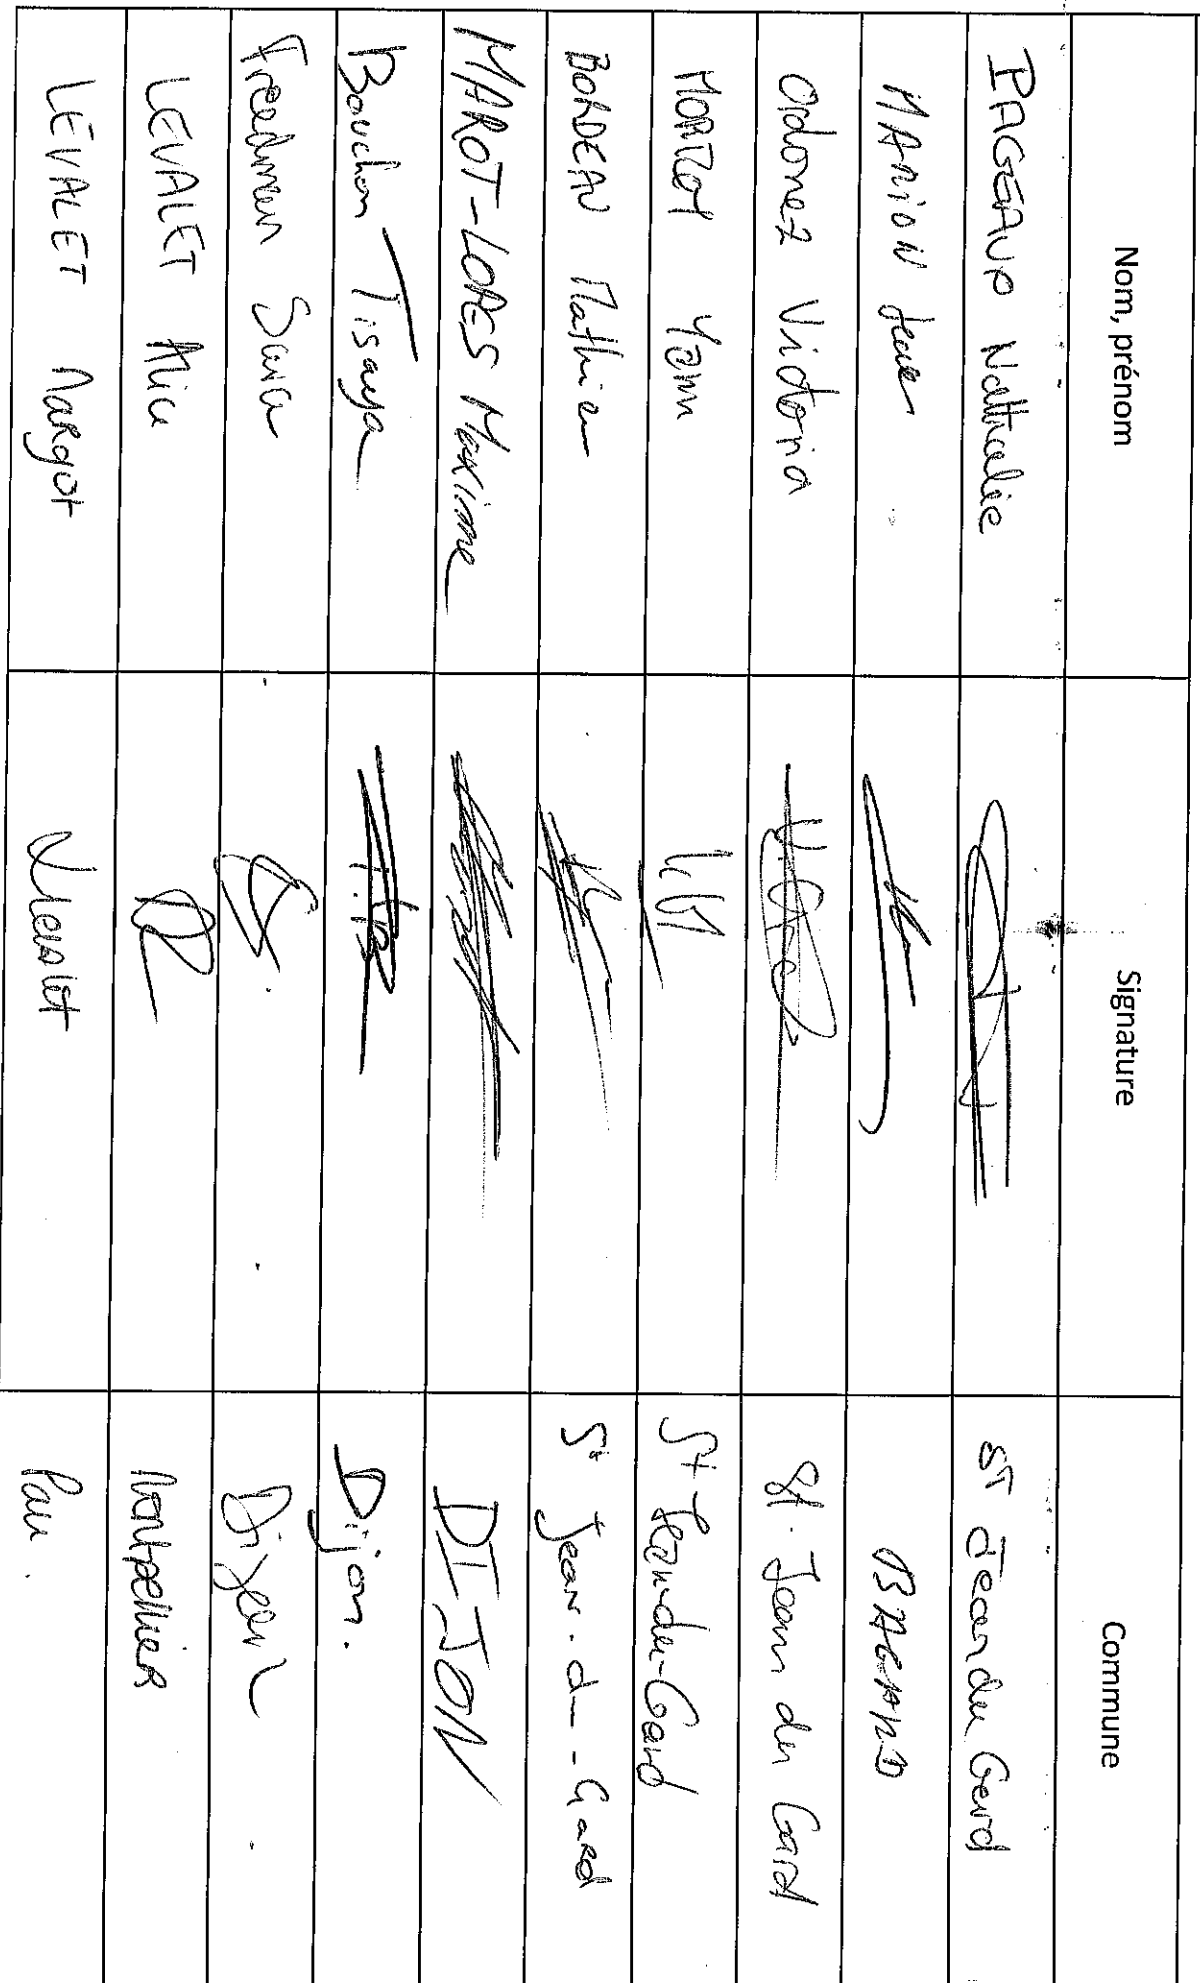 Nom, prénom Signature Commune
PAGEAUD Nathalie ST Jean du Gard
MARION Jean BAGARD
Ordonez Victoria St. Jean du Gard
Yann St Jean-du-Gard
BORDEAU Mathieu St Jean-du-Gard
MAROT-LOPES Maxime DIJON
Bouchon Tisaya Dijon.
Freedman Sara Dijon
LEVALET Alice Montpellier
LEVALET Margot Pau.